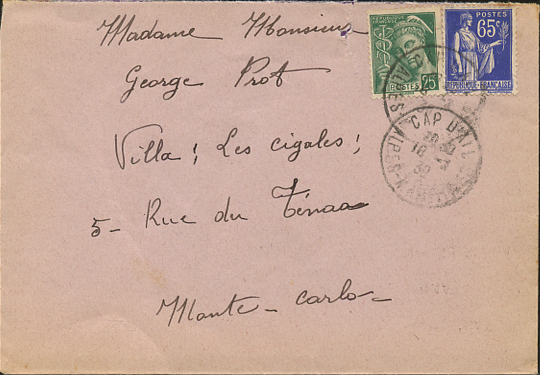 Madame Monsieur
George Prot
Villa ; Les cigales ;
5- Rue du Ténao
Monte-carlo-
REPUBLIQUE FRANÇAISE
POSTES 25c
POSTES
65c
REPUBLIQUE FRANÇAISE
CAP D'AIL
ALPES-MARITIMES